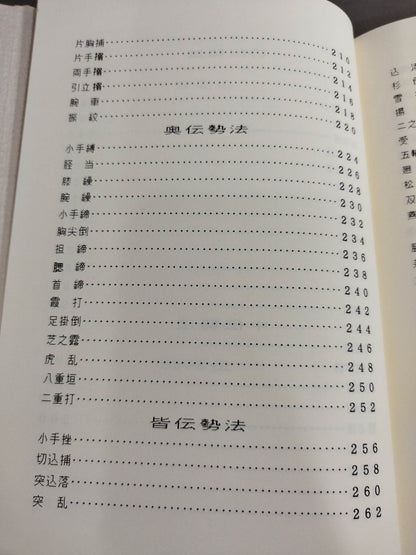 片胸捕 210
片手擋 212
両手擋 214
引立擋 216
腕車 218
振絞 220
奥伝勢法
小手縛 224
脛当 226
膝繰 228
腕繰 230
小手締 232
胸尖倒 234
担締 236
腮締 238
首締 240
霞打 242
足掛倒 244
芝之露 246
虎乱 248
八重垣 250
二重打 252
皆伝勢法
小手挫 256
切込捕 258
突込落 260
突乱 262
込
杉
雪
揚
二之
受
五輪
廻
松
双
燕